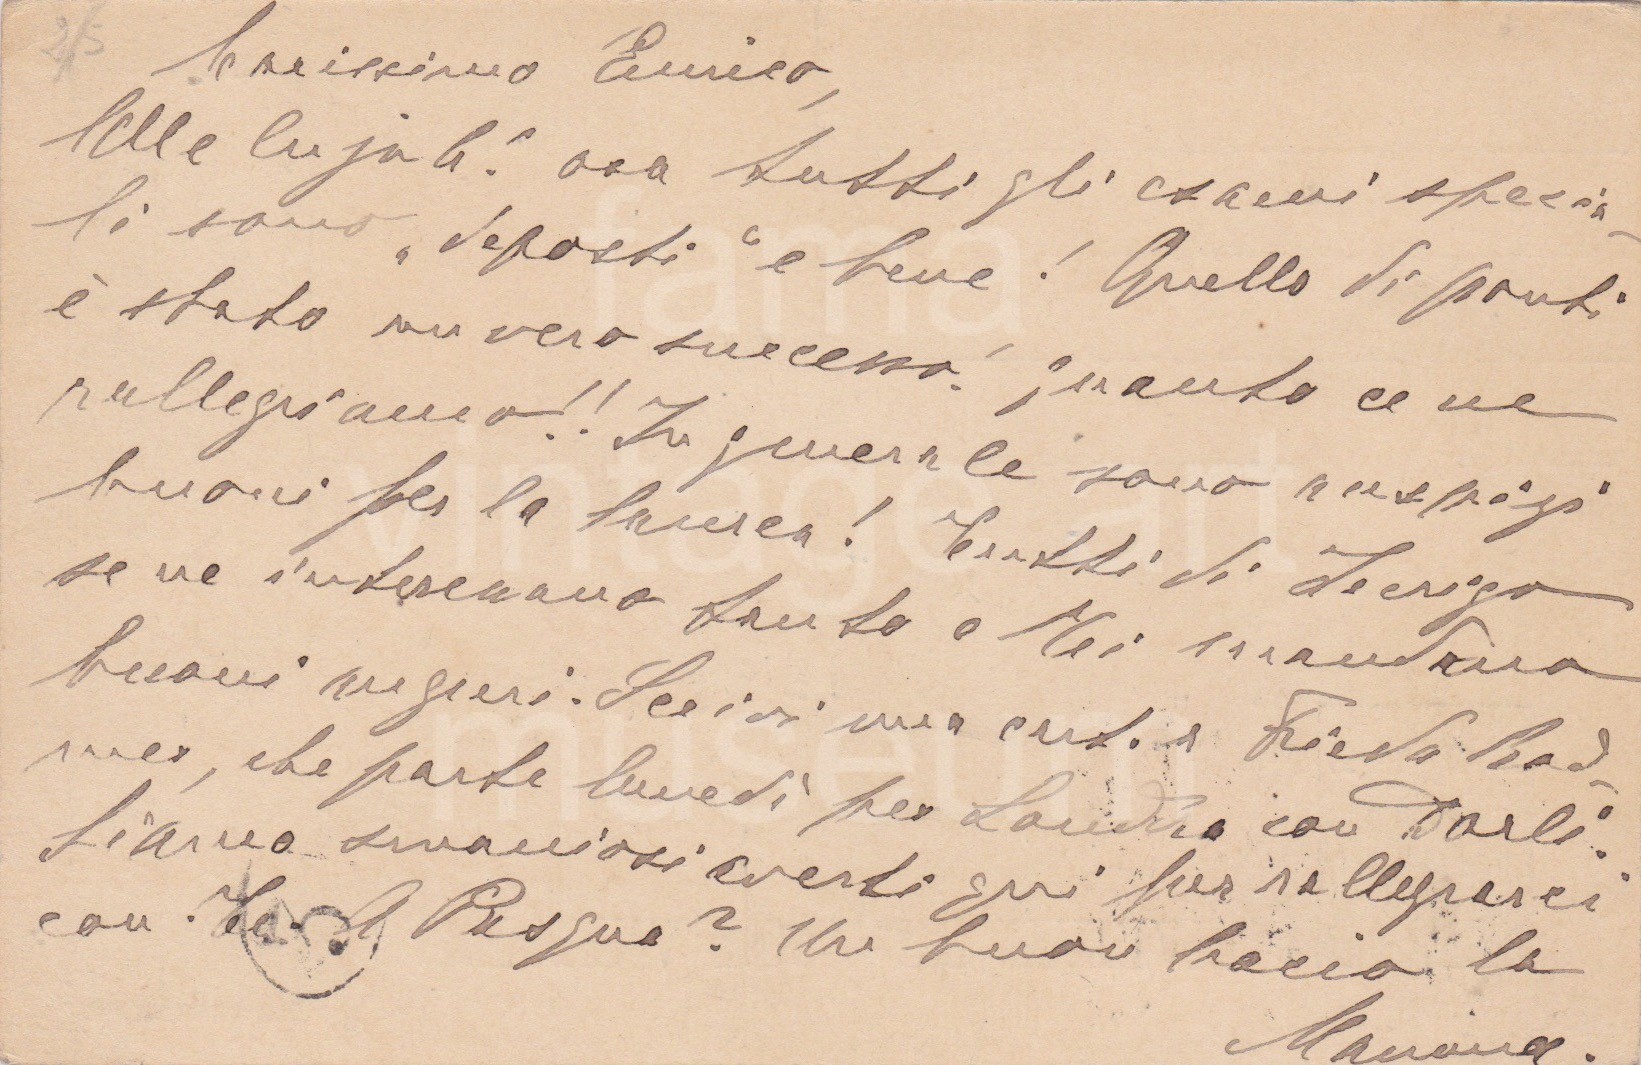 2/5
Carissimo Enrico,
Allelujah! ora tutti gli esami specia-
li sono „deposti“ e bene! Quello di ponti
è stato un vero successo! quanto ce ne
rallegriamo!! In generale sono auspizi
buoni per la laurea! Tutti di
se ne interessano tanto e Mei mandano
buoni auguri. Scrivi una cart. a Frieda
che parte lunedì per Londra con Dorli.
Siamo smaniosi averti qui per rallegrarci
con Te. A Pasqua? Un buon bacio la
Mamma.
fama
vintage art
museum